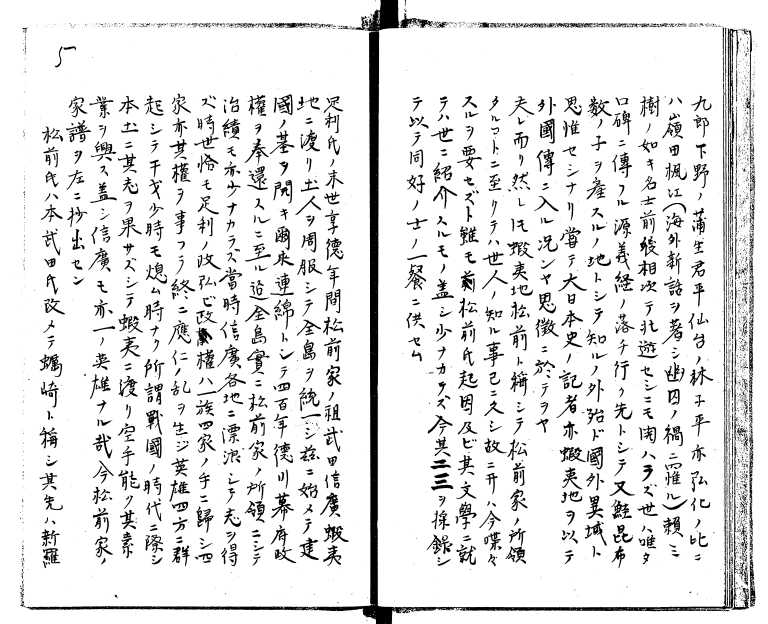 九郎下野ノ蒲生君平仙台ノ林子平亦弘化ノ比ニ
ハ嶺田楓江(海外新話ヲ著シ幽囚ノ禍ニ罹ル)頼三
樹ノ如キ名士前後相次テ北遊セシニモ関ハラズ世ハ唯タ
口碑ニ傳フル源義経ノ落チ行ク先トシテ又鮭昆布
数ノ子ヲ産スルノ地トシテ知ルノ外殆ド國外異域ト
思惟セシナリ嘗テ大日本史ノ記者亦蝦夷地ヲ以テ
外國傳ニ入ル况ンヤ思徴ニ於テヲヤ
夫レ而リ然レ𪜈蝦夷地松前ト稱シテ松前家ノ所領
タルコトニ至リテハ世人ノ知ル事已ニ久シ故ニ予ハ今喋々
スルヲ要セズト雖モ松前氏起因及ビ其文學ニ就
テハ世ニ紹介スルモノ蓋シ少ナカラズ今其二三ヲ採録シ
テ以テ同好ノ士ノ一餐ニ供セム
5
足利氏ノ末世享德年間松前家ノ祖武田信廣蝦夷
地ニ渡リ土人ヲ周服シテ全島ヲ統一シ茲ニ始メテ建
國ノ基ヲ開キ爾來連綿トシテ四百年德川幕府政
權ヲ奉還スルニ至ル迄全島實ニ松前家ノ所領ニシテ
治績モ亦少ナカラズ當時信廣各地ニ漂浪シテ志ヲ得
ズ時世恰モ足利ノ政弘ビ政權ハ一族四家ノ手ニ歸シ四
家亦其權ヲ事フテ終ニ應仁ノ乱ヲ生ジ英雄四方ニ群
起シテ干戈少時モ熄ム時ナク所謂戰國ノ時代ニ際シ
本土ニ其志ヲ果サズシテ蝦夷ニ渡リ空手能ク其素
業ヲ興ス蓋シ信廣モ亦一ノ英雄ナル哉今松前家ノ
家譜ヲ左ニ抄出セン
松前氏ハ本武田氏改メテ蠣崎ト稱シ其先ハ新羅